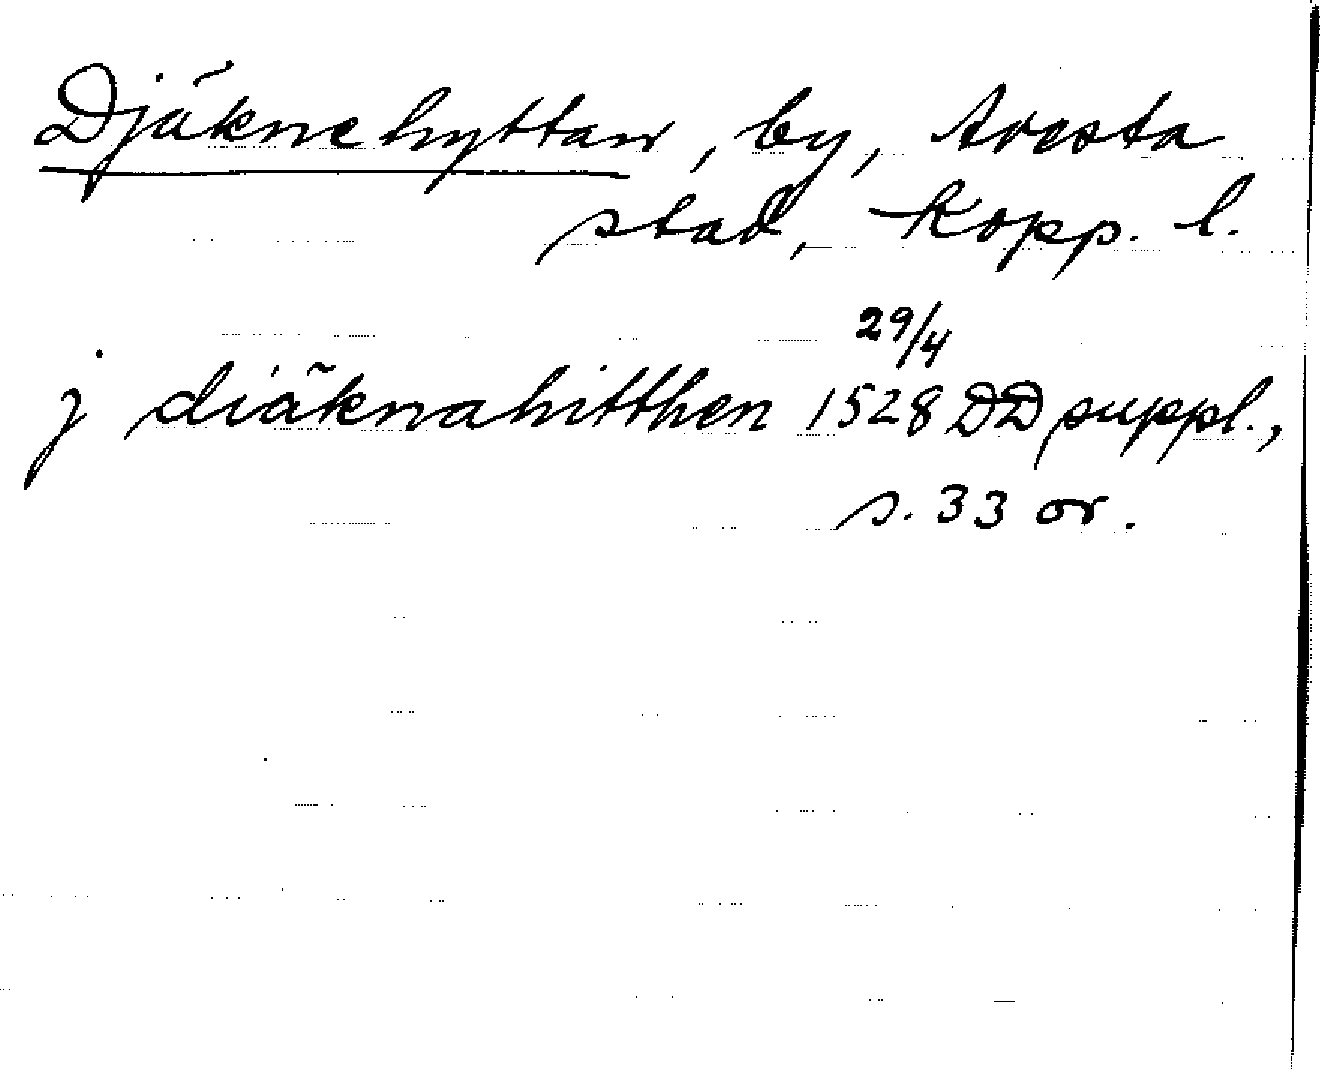 Djäknehyttan, by, Avesta
stad, Kopp. l.
j diäknahitthen 29/4 1528 DD suppl.,
s. 33 or.